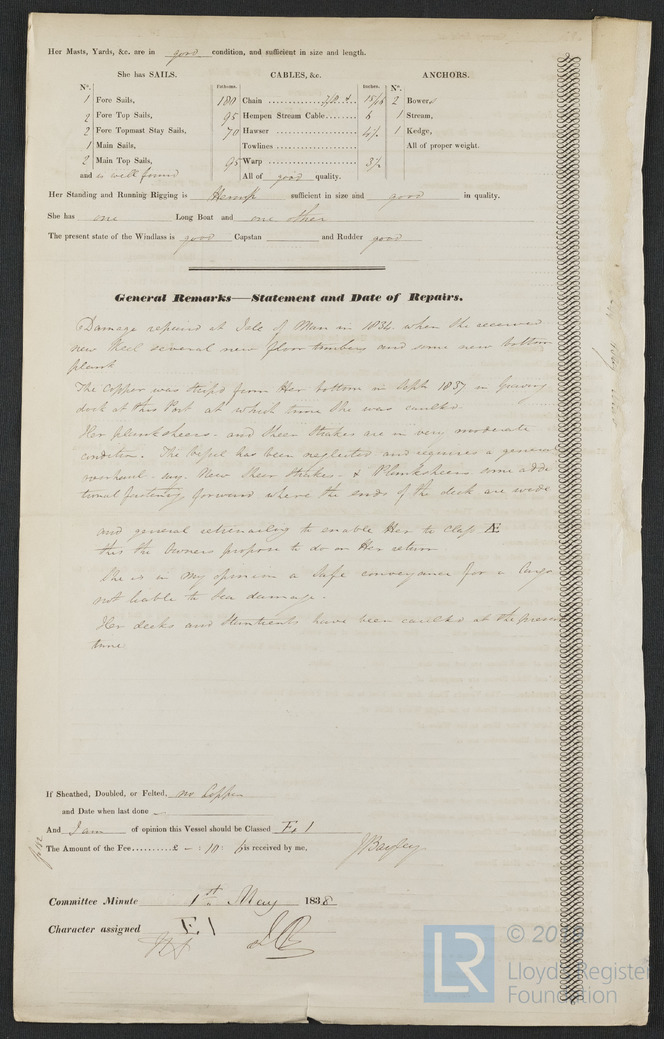 Her Masts, Yards, &c. are in good condition, and sufficient in size and length.
She has SAILS. CABLES, &c. ANCHORS.
No. Fathoms. Inches. No.
1 Fore Sails, 180 Chain 15/16 2 Bowers
2 Fore Top Sails, 95 Hempen Stream Cable 6 1 Stream,
2 Fore Topmast Stay Sails, 70 Hawser 4½ 1 Kedge,
1 Main Sails, Towlines All of proper weight.
2 Main Top Sails, 95 Warp 3½
and is well found All of good quality.
Her Standing and Running Rigging is Hemp sufficient in size and good in quality.
She has one Long Boat and one other
The present state of the Windlass is good Capstan and Rudder good
General Remarks—Statement and Date of Repairs.
Damage repaired at Isle of Man in 1834 when she received
new Keel several new floor timbers and some new bottom
plank
The Copper was stript from Her bottom in Septr 1837 in Graving
dock at this Port at which time She was caulked.
Her planksheers and Sheer Strakes are in very moderate
condition. The Vessel has been neglected and requires a general
overhaul. say. New Sheer Strakes & Planksheers some addi
tional fastening forward where the ends of the deck are
and general retrenailing to enable Her to Class Æ
this the Owners propose to do on Her return
She is in my opinion a Safe conveyance for a Cargo
not liable to Sea damage.
Her decks and have been caulked at the present
time
If Sheathed, Doubled, or Felted, no Copper
and Date when last done
And I am of opinion this Vessel should be Classed E.1
The Amount of the Fee £ - : 10 : is received by me,
J Bayley
Committee Minute 1st May 1838
Character assigned E1
LR © 201
Lloyd's Register
Foundation